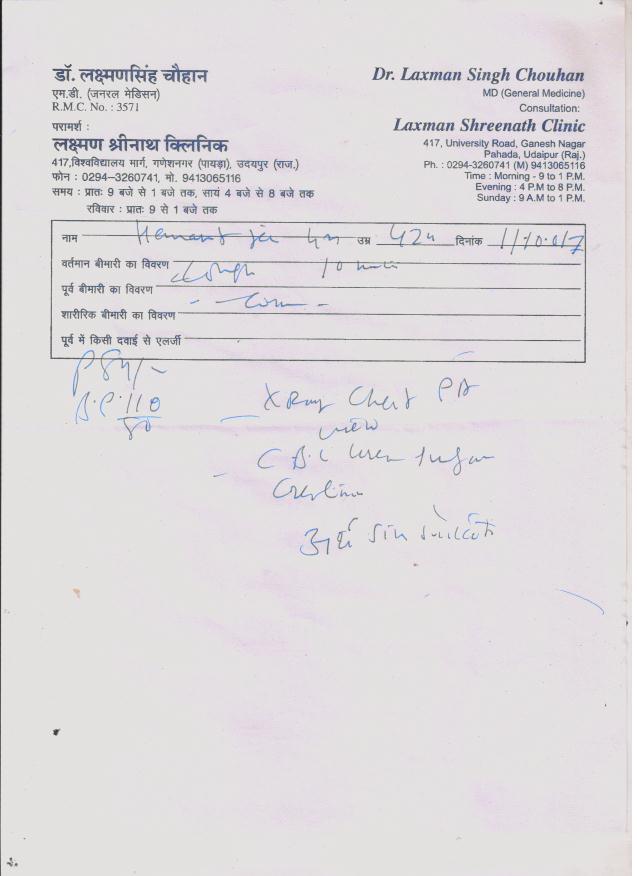 डॉ. लक्ष्मणसिंह चौहान
एम.डी. (जनरल मेडिसन)
R.M.C. No. : 3571
परामर्श :
लक्ष्मण श्रीनाथ क्लिनिक
417,विश्वविद्यालय मार्ग, गणेशनगर (पायड़ा), उदयपुर (राज.)
फोन : 0294–3260741, मो. 9413065116
समय : प्रातः 9 बजे से 1 बजे तक, सायं 4 बजे से 8 बजे तक
रविवार : प्रातः 9 से 1 बजे तक
Dr. Laxman Singh Chouhan
MD (General Medicine)
Consultation:
Laxman Shreenath Clinic
417, University Road, Ganesh Nagar
Pahada, Udaipur (Raj.)
Ph. : 0294-3260741 (M) 9413065116
Time : Morning - 9 to 1 P.M.
Evening : 4 P.M to 8 P.M.
Sunday : 9 A.M to 1 P.M.
नाम Hemant उम्र 42 दिनांक
वर्तमान बीमारी का विवरण Cough 10
पूर्व बीमारी का विवरण
शारीरिक बीमारी का विवरण
पूर्व में किसी दवाई से एलर्जी
P 84/-
B.P. 110
80
X Ray Chest PA
view
C B C Urea Sugar